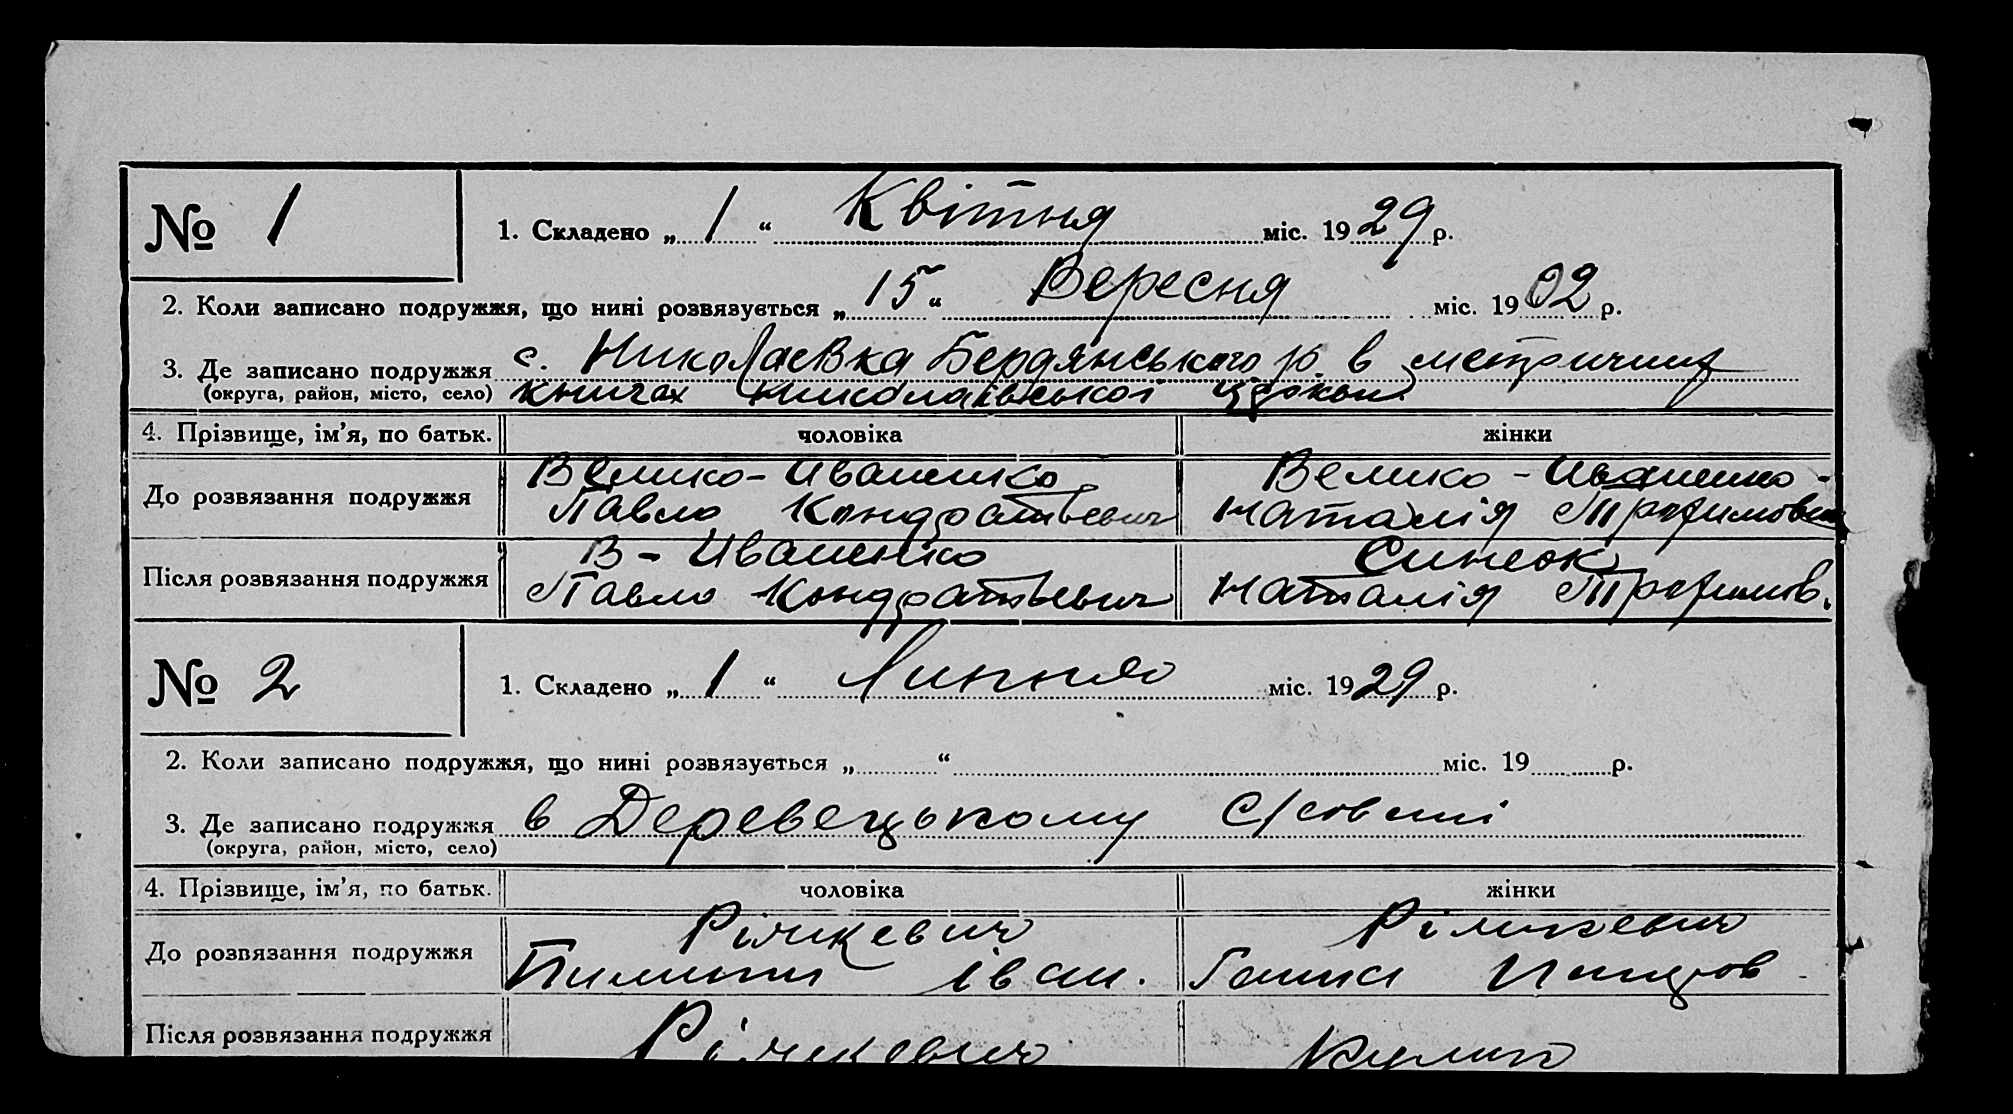 № 1
1. Складено „ 1 “ Квітня міс. 1929 р.
2. Коли записано подружжя, що нині розвязується „ 15 “ Вересня міс. 1902 р.
3. Де записано подружжя с. Николаевка Бердянського р. в метричних
(округа, район, місто, село) книгах Николаівської
4. Прізвище, ім’я, по батьк. чоловіка жінки
До розвязання подружжя
Велико-Иваненко Велико-Иваненко-
Павло Кондратьевич Наталія Трофимовна
В-Иваненко Синеок
Після розвязання подружжя Павло Кондратьевич Наталія Трофимов.
№ 2
1. Складено „ 1 “ Липня міс. 1929 р.
2. Коли записано подружжя, що нині розвязується „ “ міс. 19 р.
3. Де записано подружжя в Деревецькому С/совет́і
(округа, район, місто, село)
4. Прізвище, ім’я, по батьк. чоловіка жінки
До розвязання подружжя
Іван. Ганна
Після розвязання подружжя